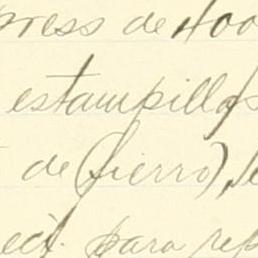 press de 400
estampillas
de (fierro), le
ect. para rep